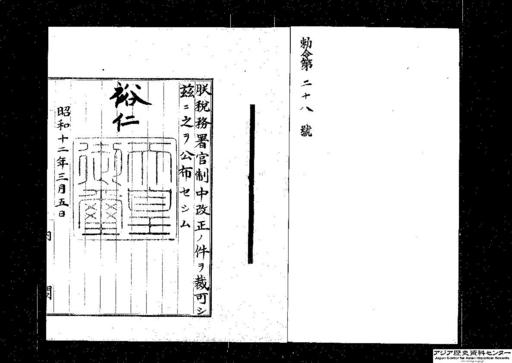 勅令第二十八號
朕税務署官制中改正ノ件ヲ裁可シ
玆ニ之ヲ公布セシム
裕仁
天皇御璽
昭和十二年三月五日
内閣
アジア歴史資料センター
Japan Center for Asian Historical Records